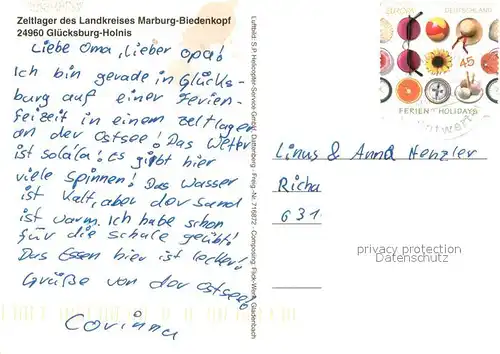 Zeltlager des Landkreises Marburg-Biedenkopf
24960 Glücksburg-Holnis
Liebe Oma, Lieber Opa!
Ich bin gerade in Glücks-
burg auf einer Ferien-
freizeit in einem zeltlager
an der Ostsee! Das Wetter
ist solala! Es gibt hier
viele Spinnen! Das Wasser
ist Kalt, aber der Sand
ist warm. Ich habe schon
für die Schule geübt!
Das Essen hier ist lecker!
Grüße von der Ostsee
Corinna
Luftbild: S.P. Helicopter-Service GmbH, - Freig.-Nr. 716872 - Composing: Flick-Werk, Gladenbach
EUROPA DEUTSCHLAND
45
FERIEN HOLIDAYS
Linus & Anna Henzler
Richa
631
privacy protection
Datenschutz